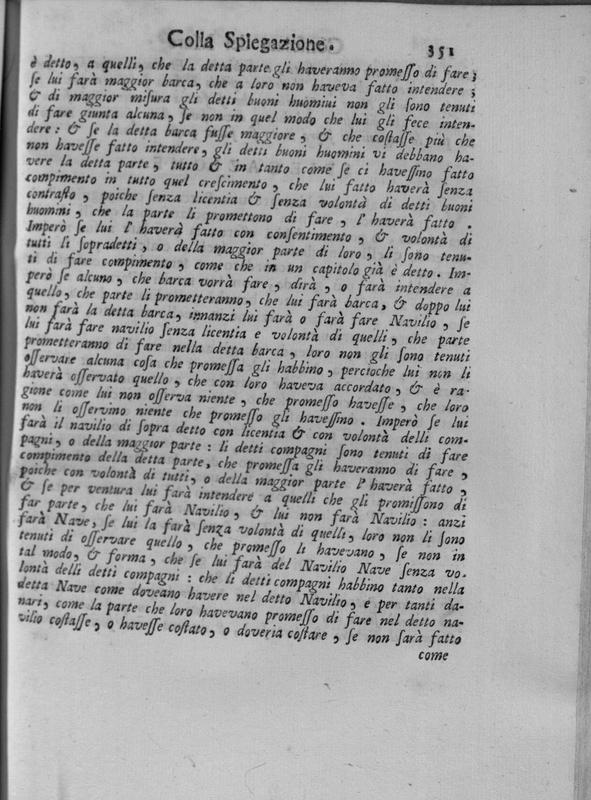 Colla Spiegazione. 351
è detto, a quelli, che la detta parte gli haveranno promeſſo di fare;
ſe lui farà maggior barca, che a loro non haveva fatto intendere;
& di maggior miſura gli detti buoni huomini non gli ſono tenuti
di fare giunta alcuna, ſe non in quel modo che lui gli fece inten-
dere: & ſe la detta barca fuſſe maggiore, & che coſtaſſe più che
non haveſſe fatto intendere, gli detti buoni huomini vi debbano ha-
vere la detta parte, tutto & in tanto come ſe ci haveſſino fatto
compimento in tutto quel creſcimento, che lui fatto haverà ſenza
contraſto, poiche ſenza licentia & ſenza volontà di detti buoni
huomini, che la parte li promettono di fare, l' haverà fatto.
Imperò ſe lui l' haverà fatto con conſentimento, & volontà di
tutti li ſopradetti, o della maggior parte di loro, li ſono tenu-
ti di fare compimento, come che in un capitolo già è detto. Im-
però ſe alcuno, che barca vorrà fare, dirà, o farà intendere a
quello, che parte li prometteranno, che lui farà barca, & doppo lui
non farà la detta barca, innanzi lui farà o farà fare Navilio, ſe
lui farà fare navilio ſenza licentia e volontà di quelli, che parte
prometteranno di fare nella detta barca, loro non gli ſono tenuti
oſſervare alcuna coſa che promeſſa gli habbino, percioche lui non li
haverà oſſervato quello, che con loro haveva accordato, & è ra-
gione come lui non oſſerva niente, che promeſſo haveſſe, che loro
non li oſſervino niente che promeſſo gli haveſſino. Imperò ſe lui
farà il navilio di ſopra detto con licentia & con volontà delli com-
pagni, o della maggior parte: li detti compagni ſono tenuti di fare
compimento della detta parte, che promeſſa gli haveranno di fare,
poiche con volontà di tutti, o della maggior parte l' haverà fatto,
& ſe per ventura lui farà intendere a quelli che gli promiſſono di
far parte, che lui farà Navilio, & lui non farà Navilio: anzi
farà Nave, ſe lui la farà ſenza volontà di quelli, loro non li ſono
tenuti di oſſervare quello, che promeſſo li havevano, ſe non in
tal modo, & forma, che ſe lui farà del Navilio Nave ſenza vo-
lontà delli detti compagni: che li detti compagni habbino tanto nella
detta Nave come doveano havere nel detto Navilio, e per tanti da-
nari, come la parte che loro havevano promeſſo di fare nel detto na-
vilio coſtaſſe, o haveſſe coſtato, o doveria coſtare, ſe non ſarà fatto
come